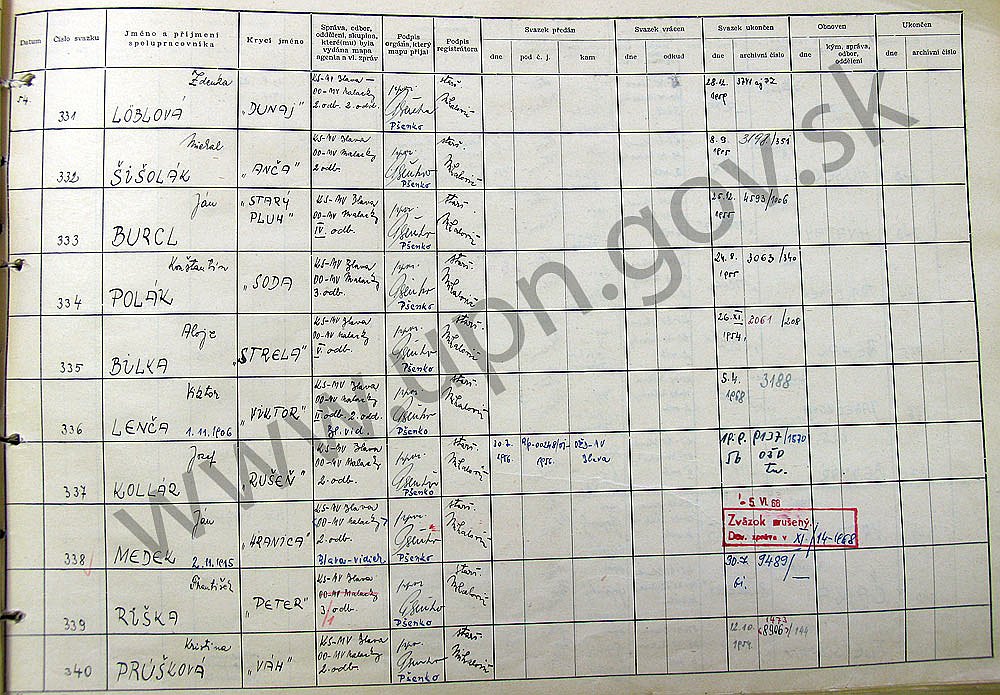 Datum
Číslo svazku
Jméno a příjmení
spolupracovníka
Krycí jméno
Správa, odbor,
oddělení, skupina,
které(mu) byla
vydána mapa
agenta a vl. zpráv
Podpis
orgána, který
mapu přijal
Podpis
registrátora
Svazek předán
dne
pod č. j.
kam
Svazek vrácen
dne
odkud
Svazek ukončen
dne
archivní číslo
Obnoven
dne
kým, správa,
odbor,
oddělení
Ukončen
dne
archivní číslo
54.
331
Zdenka
LÖBLOVÁ
„DUNAJ"
KS-MV Blava —
OO-MV Malacky
2. odb. 2. odd.
Pšenko
28.12.
332
Michal
ŠIŠOLÁK
„ANČA"
KS-MV Blava
OO-MV Malacky
2. odb.
Pšenko
8. 9.
1955
3198/351
333
Ján
BURCL
„STARÝ
PLUH"
KS-MV Blava
OO-MV Malacky
IV. odb.
Pšenko
1955
4593/1006
334
Konštantin
POLÁK
„SODA
KS-MV Blava
OO-MV Malacky
3. odb.
Pšenko
24. 8.
1955
3063/340
335
Alojz
BÍLKA
„STRELA"
KS-MV Blava
OO-MV Malacky
V. odb.
Pšenko
26. XI.
1954
2061/208
336
Viktor
LENČA
1. 11. 1906
„VIKTOR"
KS-MV Blava
OO-MV Malacky
II. odb. 2. odd.
Bl. vid.
Pšenko
5. 4.
1968
3188
337
Jozef
KOLLÁR
„RUŠEŇ"
KS-MV Blava
OO-MV Malacky
2. odb.
Pšenko
30. 7.
1956
Blava
338
Ján
MEDEK
2. 11. 1915
„HRANICA"
KS-MV Blava
OO-MV Malacky
2. odb.
Blava-vidiek
Pšenko
5. VI. 68
Zväzok zrušený.
Dov. zpráva v XI/14-1968
339
František
RÍŠKA
„PETER"
KS-MV Blava
OO-MV Malacky
3. odb.
1
Pšenko
30. 7.
9489/—
340
Kristina
PRÚŠKOVÁ
„VÁH"
KS-MV Blava
OO-MV Malacky
2. odb.
Pšenko
12. 10.
1954
1473
8906/144
www.upn.gov.sk